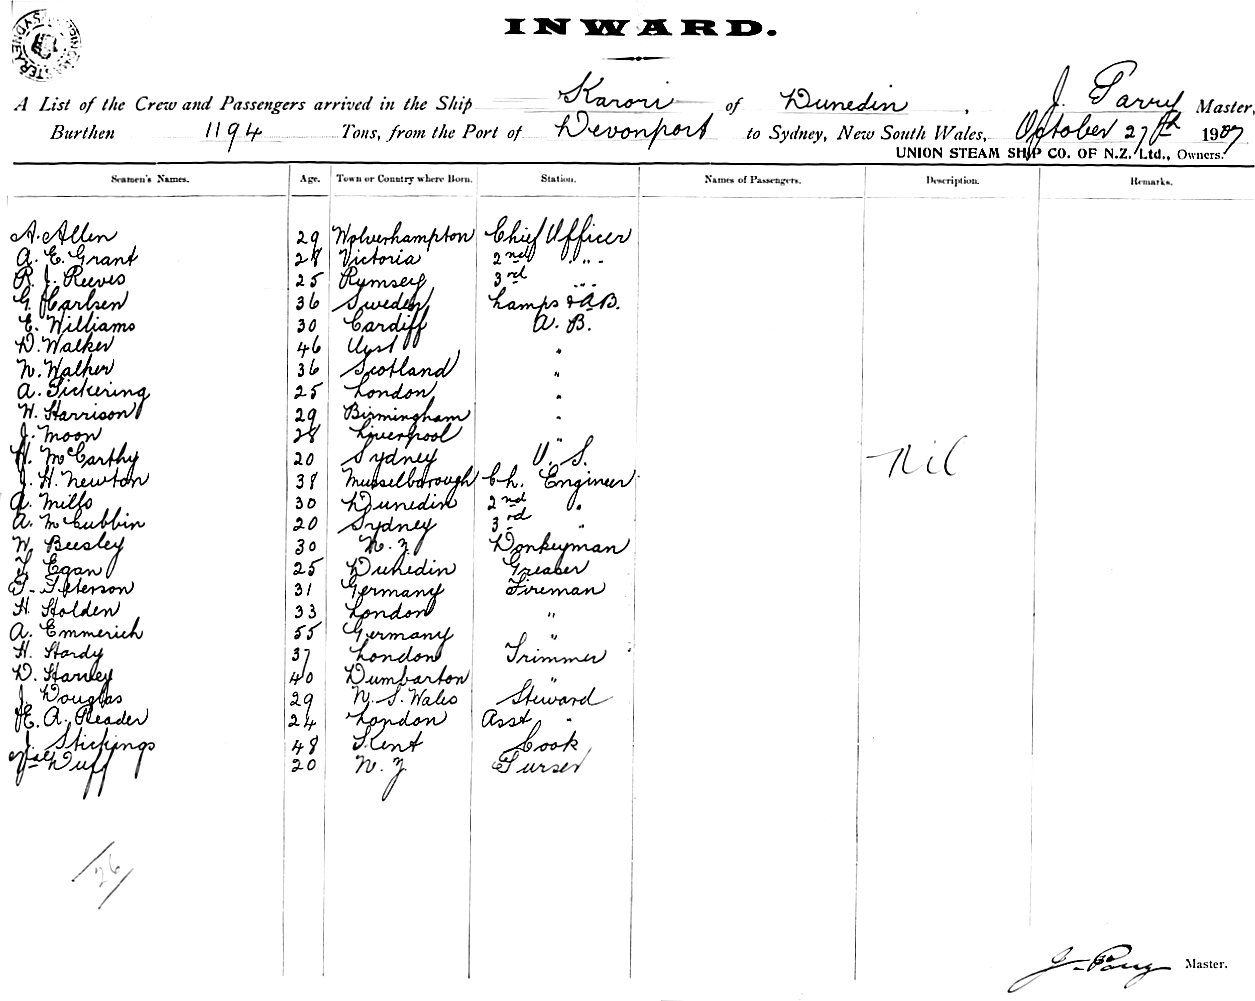 INWARD.
A List of the Crew and Passengers arrived in the Ship Karori of Dunedin, J. Parry Master,
Burthen 1194 Tons, from the Port of Devonport to Sydney, New South Wales, October 27th 1907
UNION STEAM SHIP CO. OF N.Z. Ltd., Owners.
Seamen's Names. Age. Town or Country where Born. Station. Names of Passengers. Description. Remarks.
A. Allen 29 Wolverhampton Chief Officer
A. E. Grant 28 Victoria 2nd " "
R. J. Reeves 25 Rumsey 3rd " "
G. Karlsen 36 Sweden Lamps & A.B.
E. Williams 30 Cardiff A. B.
D. Walker 46 "
N. Walker 36 Scotland "
A. Pickering 25 London "
H. Harrison 29 Birmingham "
J. Moon 28 Liverpool "
H. McCarthy 20 Sydney O. S. Nil
J. H. Newton 38 Musselborough Ch. Engineer
A. Mills 30 Dunedin 2nd "
A. McCubbin 20 Sydney 3rd "
W. Beesley 30 N. Z Donkeyman
T. Egan 25 Dunedin Greaser
P. Peterson 31 Germany Fireman
H. Holden 33 London "
A. Emmerich 55 Germany "
H. Hardy 37 London Trimmer
D. Harvey 40 Dumbarton "
J. Douglas 29 N. S. Wales Steward
H. E. A. Reader 24 London Asst "
J. Stickings 48 Kent Cook
Duff 20 N. Z Purser
26
J. Parry Master.